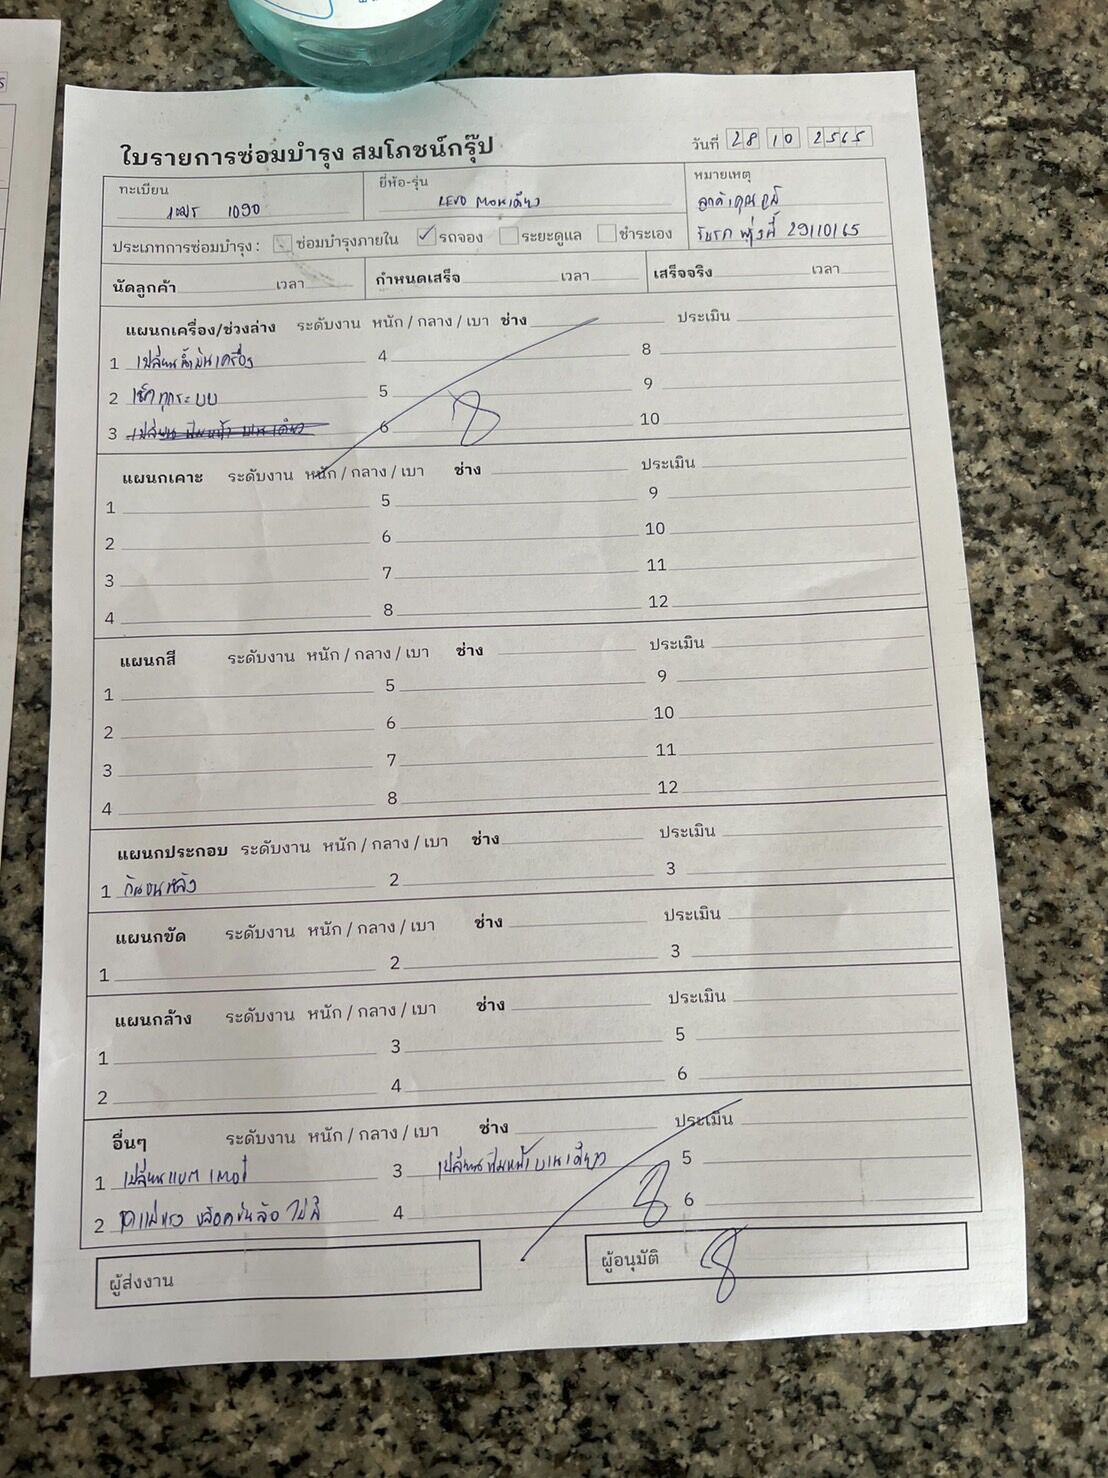 ใบรายการซ่อมบำรุง สมโภชน์กรุ๊ป
วันที่ 28 10 2565
ทะเบียน
1090
ยี่ห้อ-รุ่น
REVO ตอนเดียว
หมายเหตุ
ลูกค้าคุณ
รับรถ พรุ่งนี้ 29/10/65
ประเภทการซ่อมบำรุง : ซ่อมบำรุงภายใน ✓ รถจอง ระยะดูแล ชำระเอง
นัดลูกค้า เวลา กำหนดเสร็จ เวลา เสร็จจริง เวลา
แผนกเครื่อง/ช่วงล่าง ระดับงาน หนัก / กลาง / เบา ช่าง ประเมิน
1 เปลี่ยนน้ำมันเครื่อง 4 8
2 เช็คทุกระบบ 5 9
3 6 10
แผนกเคาะ ระดับงาน หนัก / กลาง / เบา ช่าง ประเมิน
1 5 9
2 6 10
3 7 11
4 8 12
แผนกสี ระดับงาน หนัก / กลาง / เบา ช่าง ประเมิน
1 5 9
2 6 10
3 7 11
4 8 12
แผนกประกอบ ระดับงาน หนัก / กลาง / เบา ช่าง ประเมิน
1 กันชนหลัง 2 3
แผนกขัด ระดับงาน หนัก / กลาง / เบา ช่าง ประเมิน
1 2 3
แผนกล้าง ระดับงาน หนัก / กลาง / เบา ช่าง ประเมิน
1 3 5
2 4 6
อื่นๆ ระดับงาน หนัก / กลาง / เบา ช่าง ประเมิน
1 เปลี่ยนแบตเตอรี่ 3 เปลี่ยนฟิมหน้าบานเดียว 5
2 แม่แรง บล็อคขันล้อ ไม่มี 4 6
ผู้ส่งงาน
ผู้อนุมัติ